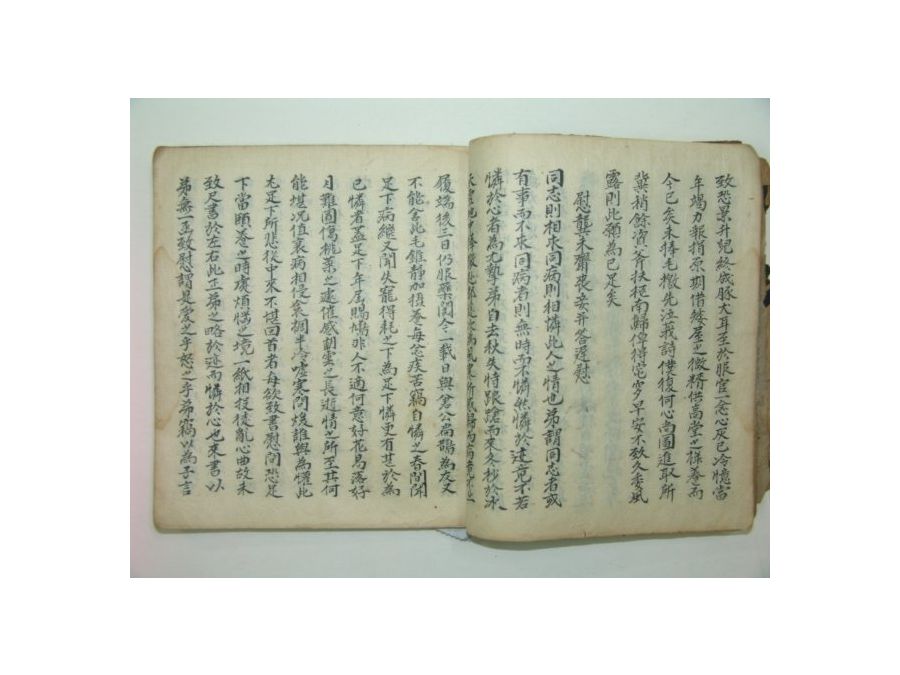 致恐景升兒終成豚犬耳至於服官一念心灰已冷憶當
年竭力報捐原期借然犀之微糈供高堂之祿養而
今已矣未捧毛檄先泣莪詩僕復何心尚圖進取所
冀稍餘資斧扶櫬南歸俾得窀穸早安不致久委風
露則此願為已足矣
慰龔未齋喪妾并答遲慰
同志則相求同病則相憐此人之情也弟謂同志者或
有事而不求同病者則無時而不憐然憐於迹竟不若
憐於心者為尤摯弟自去秋失恃踉蹌而來冬抄於冰
履端後三日仍服藥閱今一載日與倉公扁鵲為友又
不能舍此毛錐靜加頤養每念疾苦竊自憐之春間聞
足下病繼又聞失寵得耗之下為足下憐更有甚於為
已憐者蓋足下年屆賜鳩非人不適何意好花易落好
月難圓傷桃葉之遽催感朝雲之長逝情之所至其何
能堪况值衰病相侵衾裯半冷噓寒問煖誰與為懽此
尤足下所悲從中來不堪回首者每欲致書慰問恐足
下當頤養之時虞煩惱之境一紙相投徒亂心曲故未
致尺書於左右此正弟之略於迹而憐於心也來書以
弟無一函致慰謂是愛之乎恕之乎弟竊以為子言